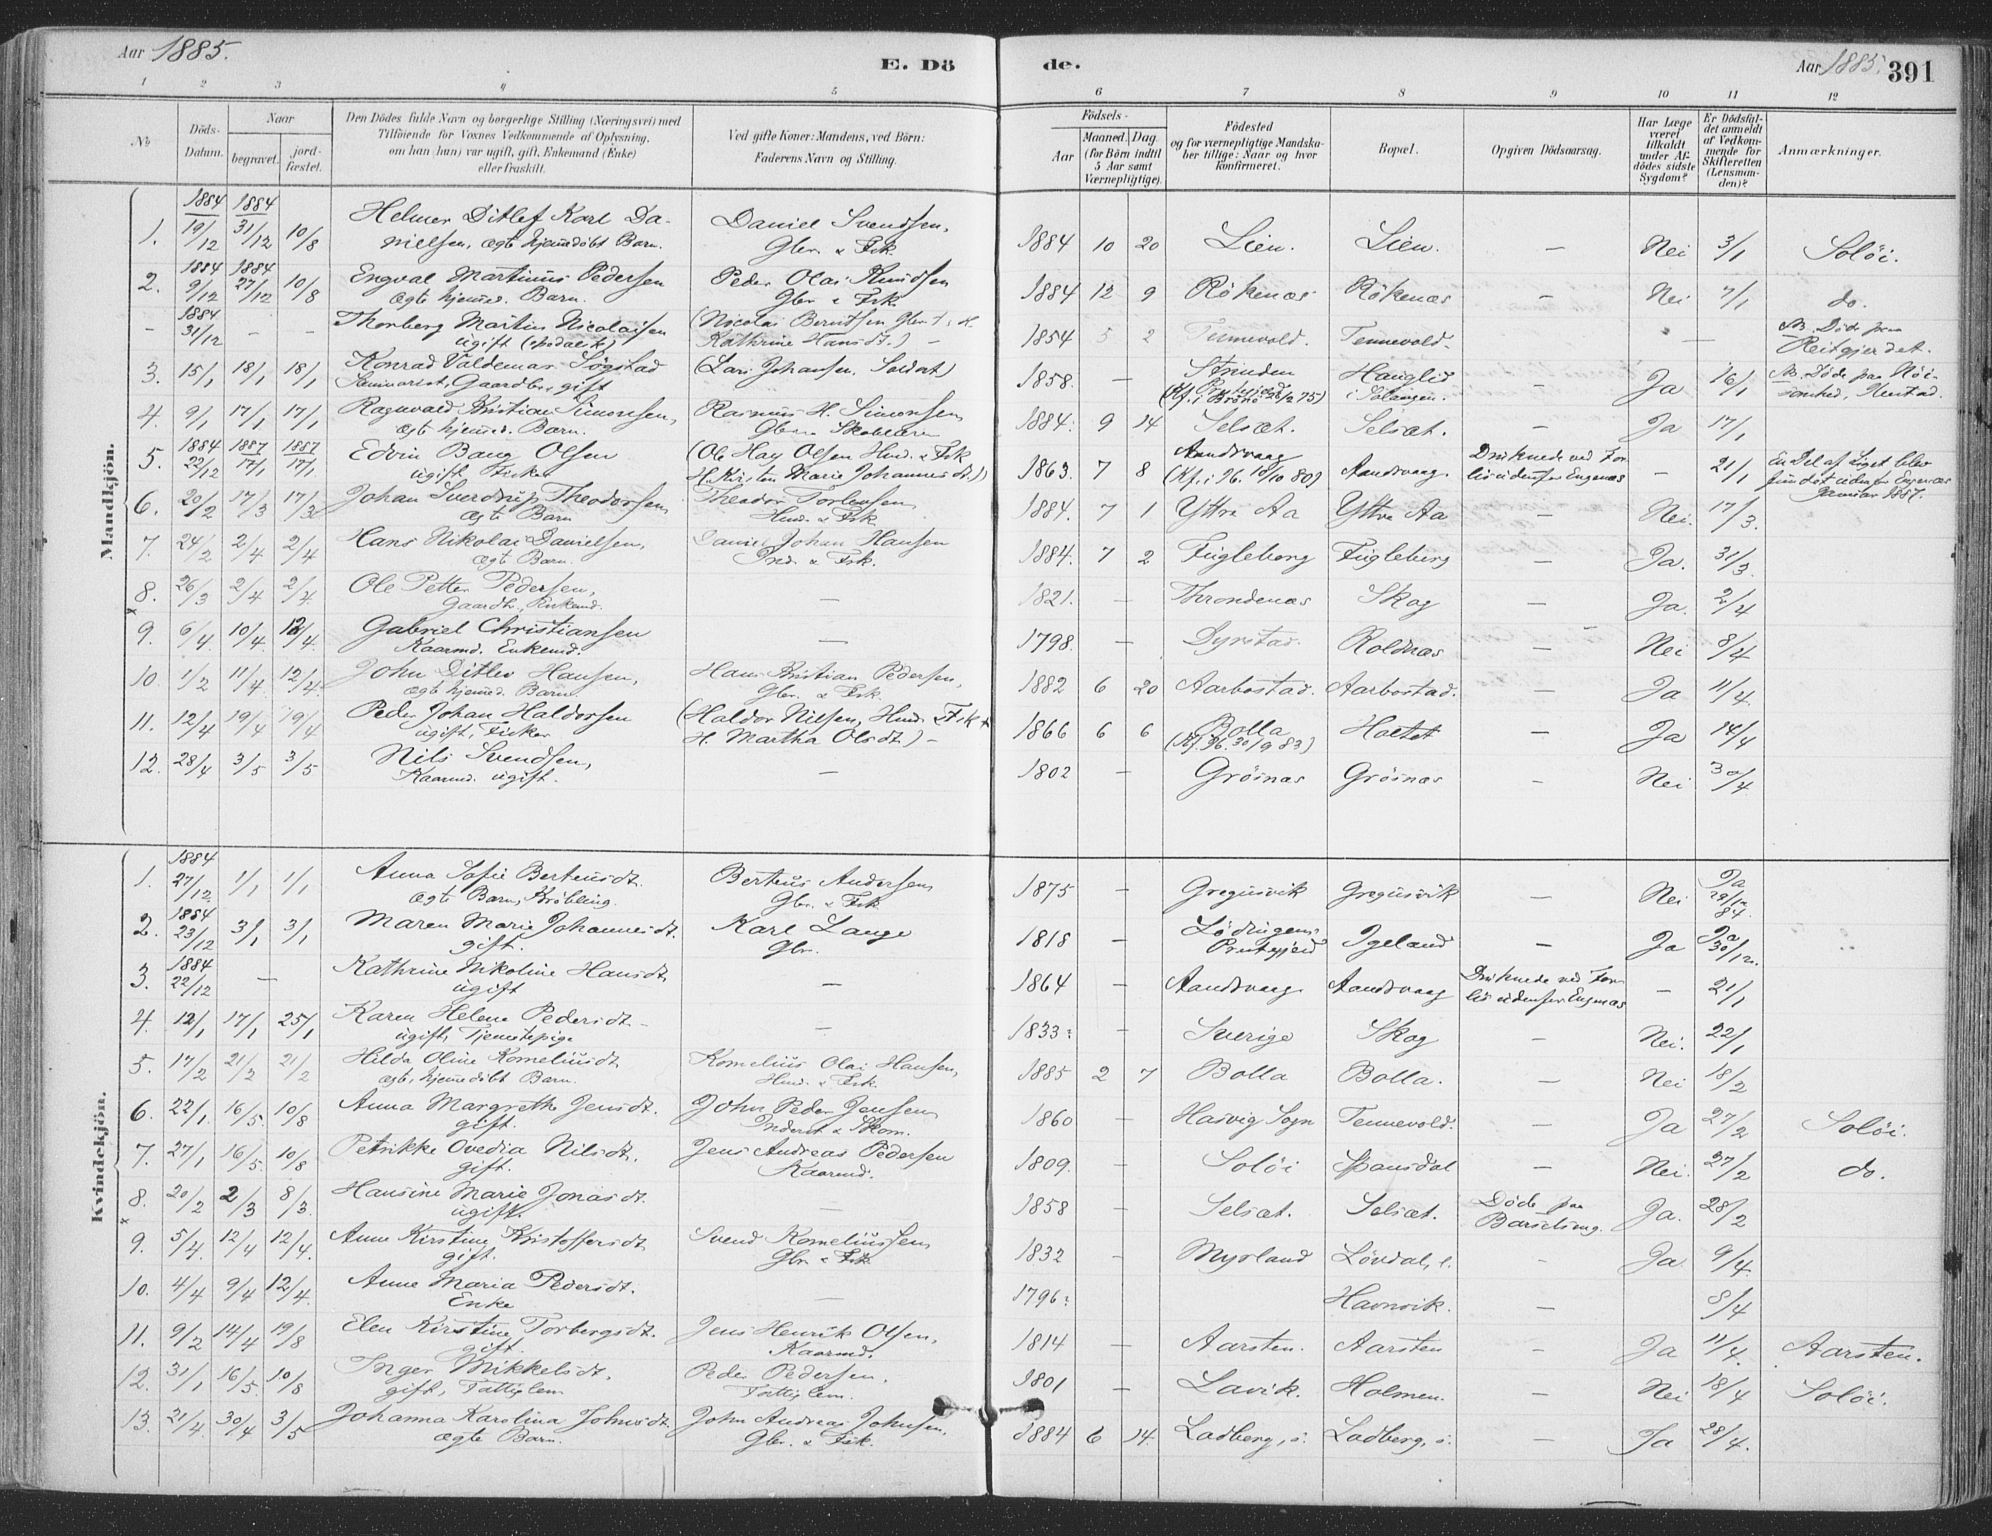 Aar 1885.
E. Dö
de.
Aar 1885.
391
1 2 3 4 5 6 7 8 9 10 11 12
No.
Döds-
Datum.
Naar
begravet.
jord-
fæstet.
Den Dödes fulde Navn og borgerlige Stilling (Næringsvei) med
Tilföiende for Voxnes Vedkommende af Oplysning,
om han (hun) var ugift, gift, Enkemand (Enke)
eller fraskilt.
Ved gifte Koner: Mandens, ved Börn:
Faderens Navn og Stilling.
Födsels-
Aar
Maaned. Dag.
(for Börn indtil
5 Aar samt
Værnepligtige).
Födested
og for værnepligtige Mandska-
ber tillige: Naar og hvor
konfirmeret.
Bopæl.
Opgiven Dödsaarsag.
Har Læge
været
tilkaldt
under Af-
dödes sidste
Sygdom?
Er Dödsfal-
det anmeldt
af Vedkom-
mende for
Skifteretten
(Lensman-
den)?
Anmærkninger.
Mandkjön.
1. 1884 19/12 1884 31/12 10/8 Helmer Ditlef Karl Da-
nielsen, ægte hjemmedöbt Barn. Daniel Svendsen, Gbr. & Fsk. 1884 10 20 Lien. Lien. — Nei 3/1 Solöi.
2. 1884 9/12 1884 27/12 10/8 Engval Martinus Pedersen
ægte hjemmed. Barn. Peder Olai Knudsen Gbr. & Fsk. 1884 12 9 Rökenæs Rökenæs — Nei 7/1 do.
— 1884 31/12 — — Thorberg Martin Nicolaisen
ugift (Nicolai Berntsen Gbr. &
Kathrine Hansdt.) — 1854 5 2 Tennevold. Tennevold. — NB. Döde paa
Reitgjerdet.
3. 15/1 18/1 18/1 Konrad Valdemar Søgstad
Seminarist, Gaardbr., gift (Lars Johansen, Soldat) 1858. — Strinden
Hanglid
i Salangen. Ja 16/1 NB. Döde paa
4. 9/1 17/1 17/1 Ragnvald Kristian Simonsen,
ægte hjemmed. Barn. Rasmus H. Simonsen, 1884. 9 14 Selsæt. Selsæt. — Ja 17/1
5. 1884 22/12 1887 17/1 1887 17/1 Edvin Bang Olsen
ugift Fisker (Ole Hay Olsen Husm. & Fsk
H. Kirsten Marie Johannesdt.) 1863. 7 8 Aandsvaag
(Kf. i 96. 10/10 80) Aandsvaag. Druknede ved For-
lis udenfor Engenæs — 21/1 En Del af Liget blev
fundet udenfor Engenæs
Januar 1887.
6. 20/2 17/3 17/3 Johan Sverdrup Theodorsen,
ægte Barn Theodor Torbensen, Husm. & Fsk. 1884. 7 1 Yttre Aa Yttre Aa — Nei. 17/3.
7. 24/2 2/4 2/4 Hans Nikolai Danielsen,
ægte Barn. Daniel Johan Hansen
Ind. & Fsk. 1884. 7 2 Fugleberg Fugleberg — Ja. 31/3.
8. 26/3 2/4 2/4 Ole Petter Pedersen,
Gaardbr., Enkemd. — 1821. — Throndenæs Skog — Ja. 2/4
9. 6/4 10/4 12/4 Gabriel Christiansen
Kaarmd. Enkemd. — 1798. — Dyrstad. Roldnæs — Nei 8/4
10. 1/2 11/4 12/4 John Ditlev Hansen,
ægte hjemmed. Barn. Hans Kristian Pedersen, Gbr. & Fsk. 1882 6 20 Aarbostad. Aarbostad. — Ja 11/4.
11. 12/4 19/4 19/4 Peder Johan Haldorsen
ugift, Fisker (Haldor Nilsen, Husm. & Fsk &
H. Martha Olsdt.) — 1866 6 6 Bolla
(Kf. 96. 30/9 83) Holtet — Ja 14/4
12. 28/4 3/5 3/5 Nils Svendsen,
Kaarmd. ugift. — 1802 — Grösnæs Grösnæs — Nei 30/4.
Kvindekjön.
1. 1884 27/12 1/1 1/1 Anna Sofie Berteusdt.
ægte Barn, Kröbling. Berteus Andersen, Gbr. & Fsk. 1875 — Gregusvik Gregusvik — Nei Ja 29/12 84.
2. 1884 23/12 3/1 3/1 Maren Marie Johannesdt.
gift. Karl Lange
Gbr. 1818 — Lödingens
Prestegjeld Igeland — Ja Ja 30/12.
3. 1884 22/12 — Kathrine Nikoline Hansdt.
ugift — 1864 — Aandsvaag Aandsvaag Druknede ved For-
lis udenfor Engenæs — 21/1
4. 12/1 17/1 25/1 Karen Helene Pedersdt. —
ugift, Tjenestepige — 1833. — Sverige Skog — Nei. 22/1
5. 17/2 21/2 21/2 Hilda Oline Korneliusdt.
ægte, hjemmedöbt Barn. Kornelius Olai Hansen,
Husm. & Fsk. 1885 2 7 Bolla Bolla. — Nei 18/2
6. 22/1 16/5 10/8 Anna Margrethe Jensdt.
gift. John Peder Jensen,
Inderst & Skom. 1860 — Hasvig Sogn Tennevold. — Ja 27/2 Solöi.
7. 27/1 16/5 10/8 Petrikke Ovedia Nilsdt.
gift. Jens Andreas Pedersen
Kaarmd. 1809. — Solöi Spansdal — Nei. 27/2 do.
8. 20/2 2/3 8/3 Hansine Marie Jonasdt.
ugift. — 1858 — Selsæt. Selsæt. Döde paa
Barselseng. Ja. 28/2
9. 5/4 12/4 12/4 Anne Kirstine Kristoffersdt.
gift. Svend Korneliussen, Gbr. & Fsk. 1832 — Myrland Lövdal, — Ja 9/4.
10. 4/4 9/4 12/4 Anne Maria Pedersdt.
Enke — 1796. Havnvik. — 8/4
11. 9/2 14/4 19/8 Elen Kirstine Torbergsdt.
gift. Jens Henrik Olsen,
Kaarmd. 1814 — Aarsten. Aarsten — Ja 11/4. Aarsten.
12. 31/1 16/5 10/8 Inger Mikkelsdt.
gift, Fattiglem Peder Pedersen,
Fattiglem. 1801 — Lavik. Holmen. — Nei 18/4 Solöi.
13. 21/4 30/4 3/5 Johanna Karolina Johnsdt.
ægte Barn. John Andreas Johnsen,
Gbr. & Fsk. 1884 6 14. Ladberg, i. Ladberg, i. — Ja 28/4.